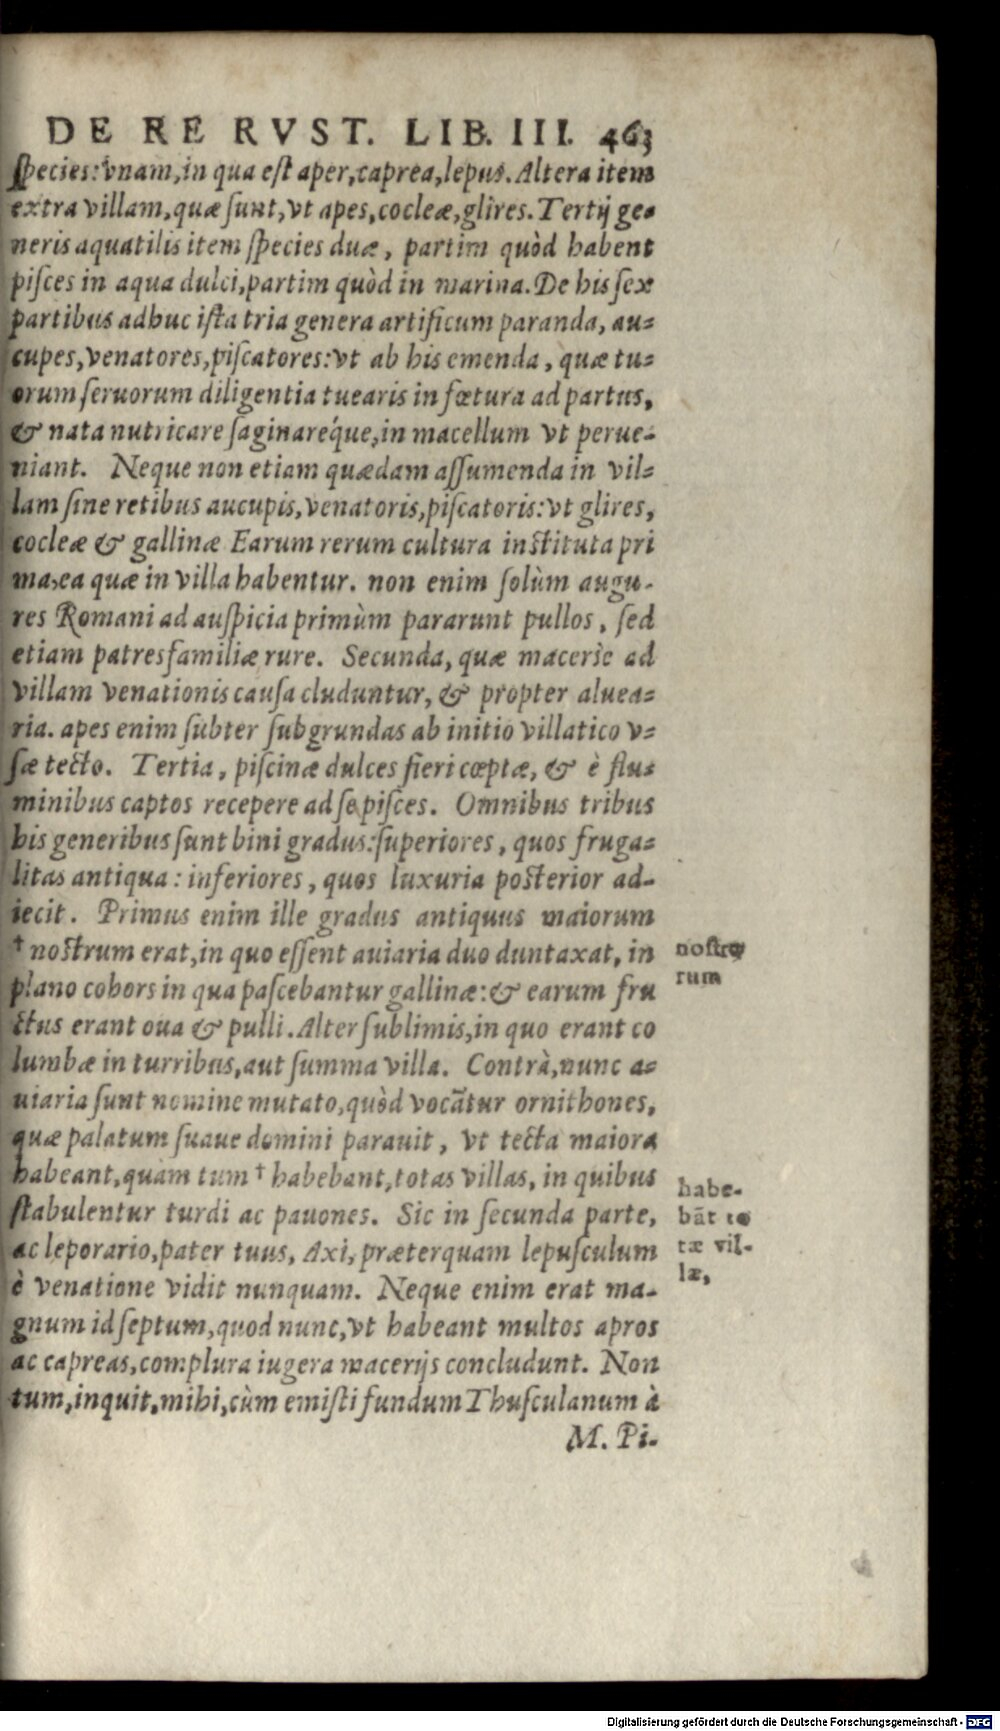 DE RE RVST. LIB. III. 463
species: vnam, in qua est aper, caprea, lepus. Altera item
extra villam, quæ sunt, vt apes, cocleæ, glires. Tertij ge-
neris aquatilis item species duæ, partim quòd habent
pisces in aqua dulci, partim quòd in marina. De his sex
partibus adhuc ista tria genera artificum paranda, au-
cupes, venatores, piscatores: vt ab his emenda, quæ tu-
orum seruorum diligentia tuearis in fœtura ad partus,
& nata nutricare saginaréque, in macellum vt perue-
niant. Neque non etiam quædam assumenda in vil-
lam sine retibus aucupis, venatoris, piscatoris: vt glires,
cocleæ & gallinæ Earum rerum cultura instituta pri
ma, ea quæ in villa habentur. non enim solùm augu-
res Romani ad auspicia primùm pararunt pullos, sed
etiam patresfamiliæ rure. Secunda, quæ macerìe ad
villam venationis causa cluduntur, & propter aluea-
ria. apes enim subter subgrundas ab initio villatico v-
sæ tecto. Tertia, piscinæ dulces fieri cœptæ, & è flu-
minibus captos recepere ad se pisces. Omnibus tribus
his generibus sunt bini gradus: superiores, quos fruga-
litas antiqua: inferiores, quos luxuria posterior ad-
iecit. Primus enim ille gradus antiquus maiorum
† nostrum erat, in quo essent auiaria duo duntaxat, in
plano cohors in qua pascebantur gallinæ: & earum fru
ctus erant oua & pulli. Alter sublimis, in quo erant co
lumbæ in turribus, aut summa villa. Contrà, nunc a-
uiaria sunt nomine mutato, quòd vocātur ornithones,
quæ palatum suaue domini parauit, vt tecta maiora
habeant, quàm tum † habebant, totas villas, in quibus
stabulentur turdi ac pauones. Sic in secunda parte,
ac leporario, pater tuus, Axi, præterquam lepusculum
è venatione vidit nunquam. Neque enim erat ma-
gnum id septum, quod nunc, vt habeant multos apros
ac capreas, complura iugera macerijs concludunt. Non
tum, inquit, mihi, cùm emisti fundum Thusculanum à
M. Pi-
nostro
rum
habe-
bāt to
tæ vil-
læ,
Digitalisierung gefördert durch die Deutsche Forschungsgemeinschaft - DFG